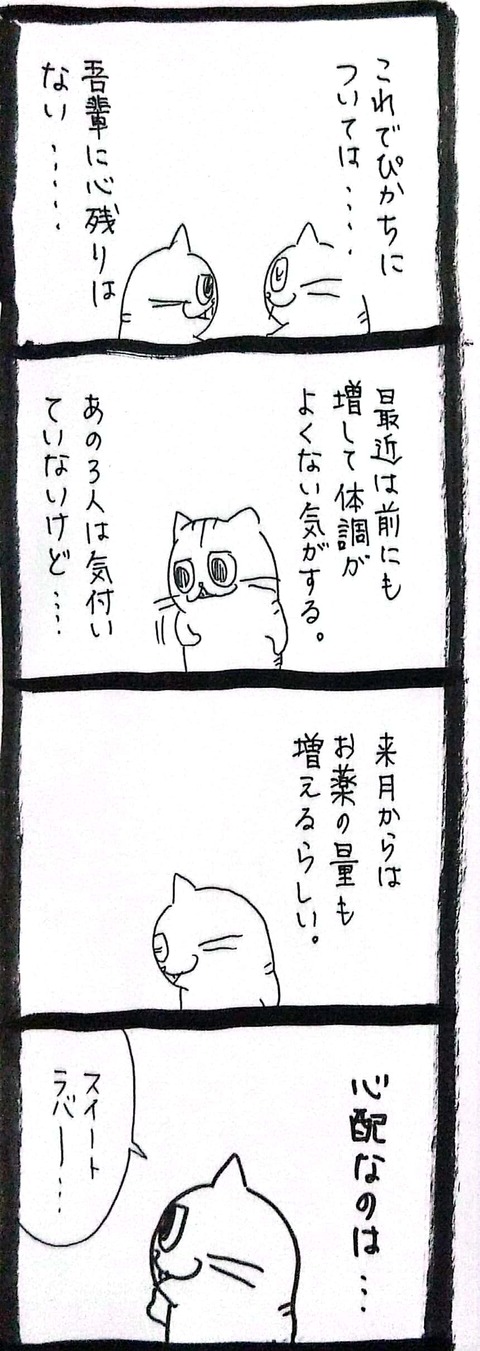 これでぴかちに
ついては・・・・
吾輩に心残りは
ない・・・・・
最近は前にも
増して体調が
よくない気がする。
あの3人は気付い
ていないけど・・・・
来月からは
お薬の量も
増えるらしい。
心配なのは・・・
スイート
ラバー・・・